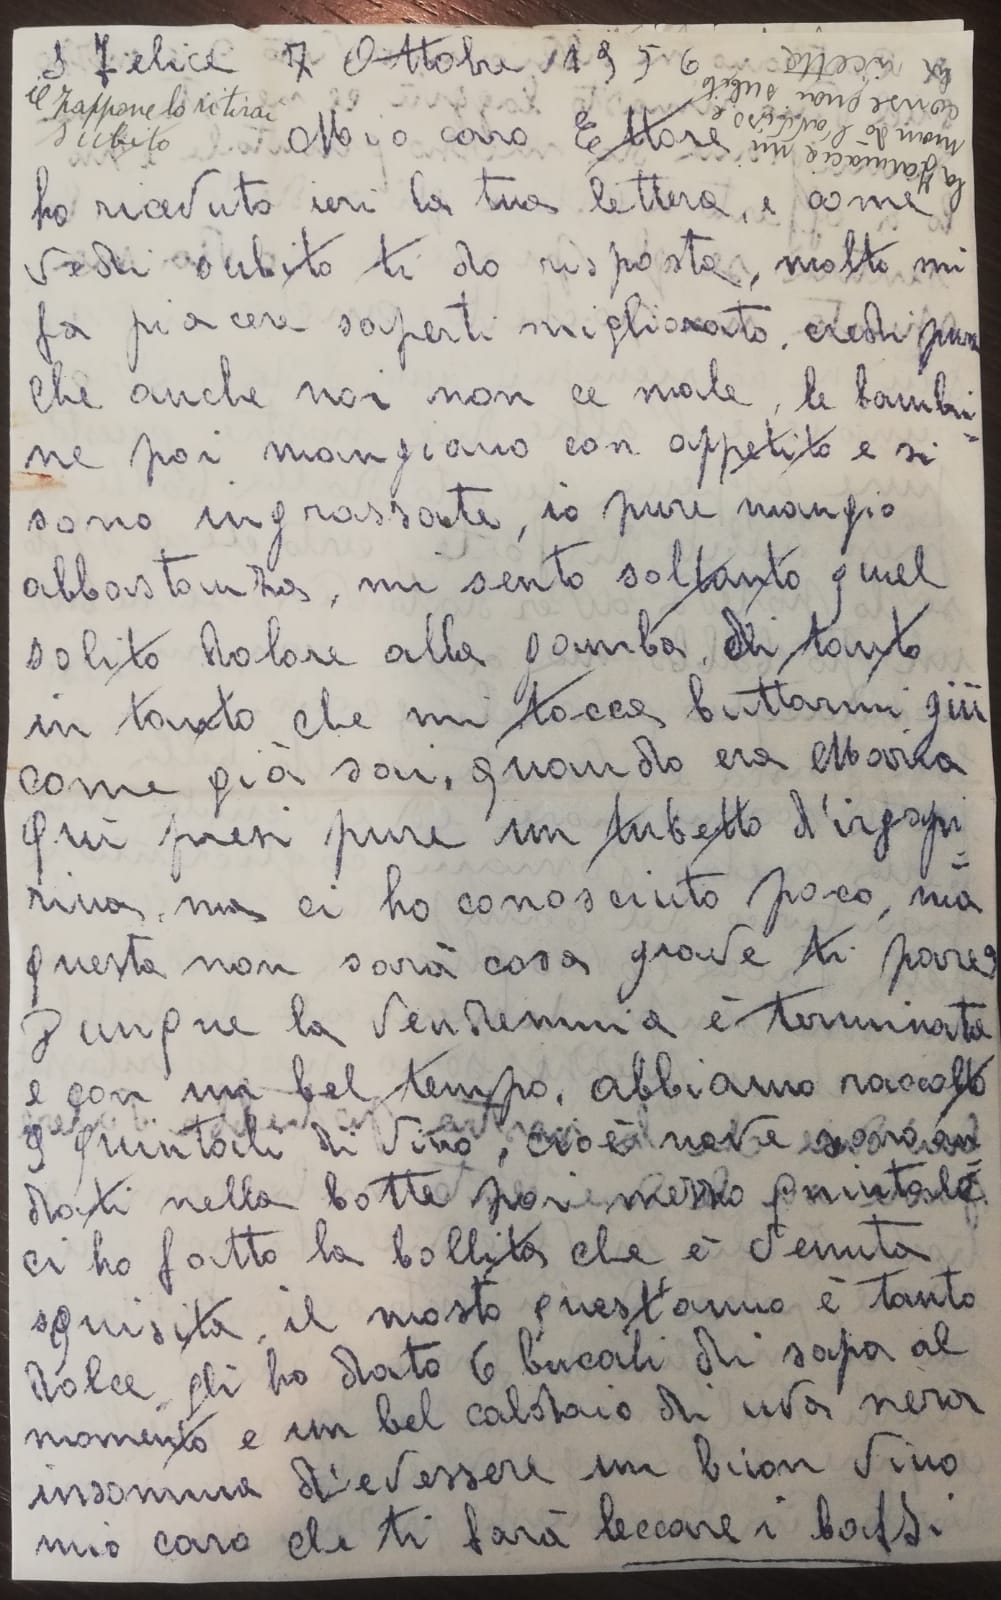 S Felice 7 Ottobre 1956
il Zappone lo ritirai
subito
Mio caro Ettore
ho ricevuto ieri la tua lettera, e come
vedi subito ti do risposta, molto mi
fa piacere saperti migliorato, credi pure
che anche noi non ce male, le bambi=
ne poi mangiano con appetito e si
sono ingrassate, io pure mangio
abbastanza, mi sento soltanto quel
solito dolore alla gamba, di tanto
in tanto che mi tocca buttarmi giù
come già sai, quando era Maria
qui presi pure un tubetto d'irgapi=
rina, ma ci ho conosciuto poco, ma
questa non sarà cosa grave ti pare?
Dunque la vendemmia è terminata
e con un bel tempo, abbiamo raccolto
9 quintali di vino, cioè nove sono an=
dati nella botte poi mezzo quintale
ci ho fatto la bollita che è venuta
squisita, il mosto quest'anno è tanto
dolce, gli ho dato 6 bucali di sapa al
momento e un bel caldaio di uva nera
insomma d'evessere un buon vino
mio caro che ti farà leccare i baffi
la farmacia mi
mandò l'avviso e
consegnai subito
la ricetta